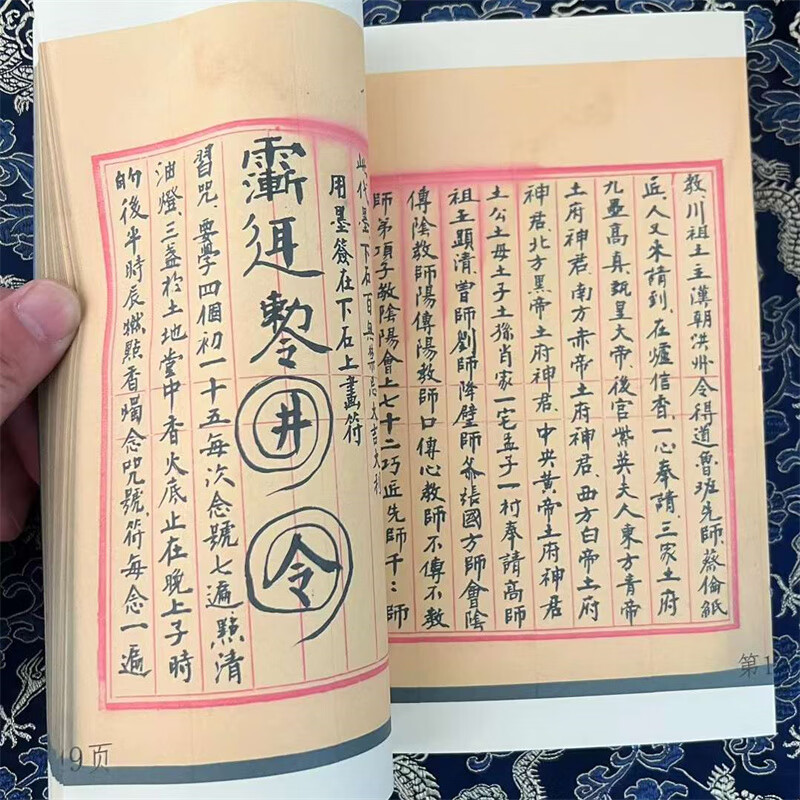 教、川祖土主漢朝洪州令得道魯班先師、蔡倫紙
近、人又来請到、在爐信香、一心奉請、三家土府
九壘高真、皇大帝、後官紫英夫人東方青帝
土府神君、南方赤帝土府神君、西方白帝土府
神君、北方黑帝土府神君、中央黄帝土府神君
土公土母土子土孫肖家一宅孟子一村奉請高師
祖主顕清、曽師劉師降壁師爺張國方師會陰
傳陰教師陽傳陽教師口傳心教師不傳不教
師弟項子教陰陽會上七十二巧近先師千〻師
第1
此代墨下石百無禁忌大吉大利
用墨簽在下石上畫符
勅令井令
習咒、要學四個初一十五每次念號七遍點清
油燈、三盏於土地堂中香火底止在晚上子時
的後半時辰燃點香燭念咒號、符每念一遍
9页